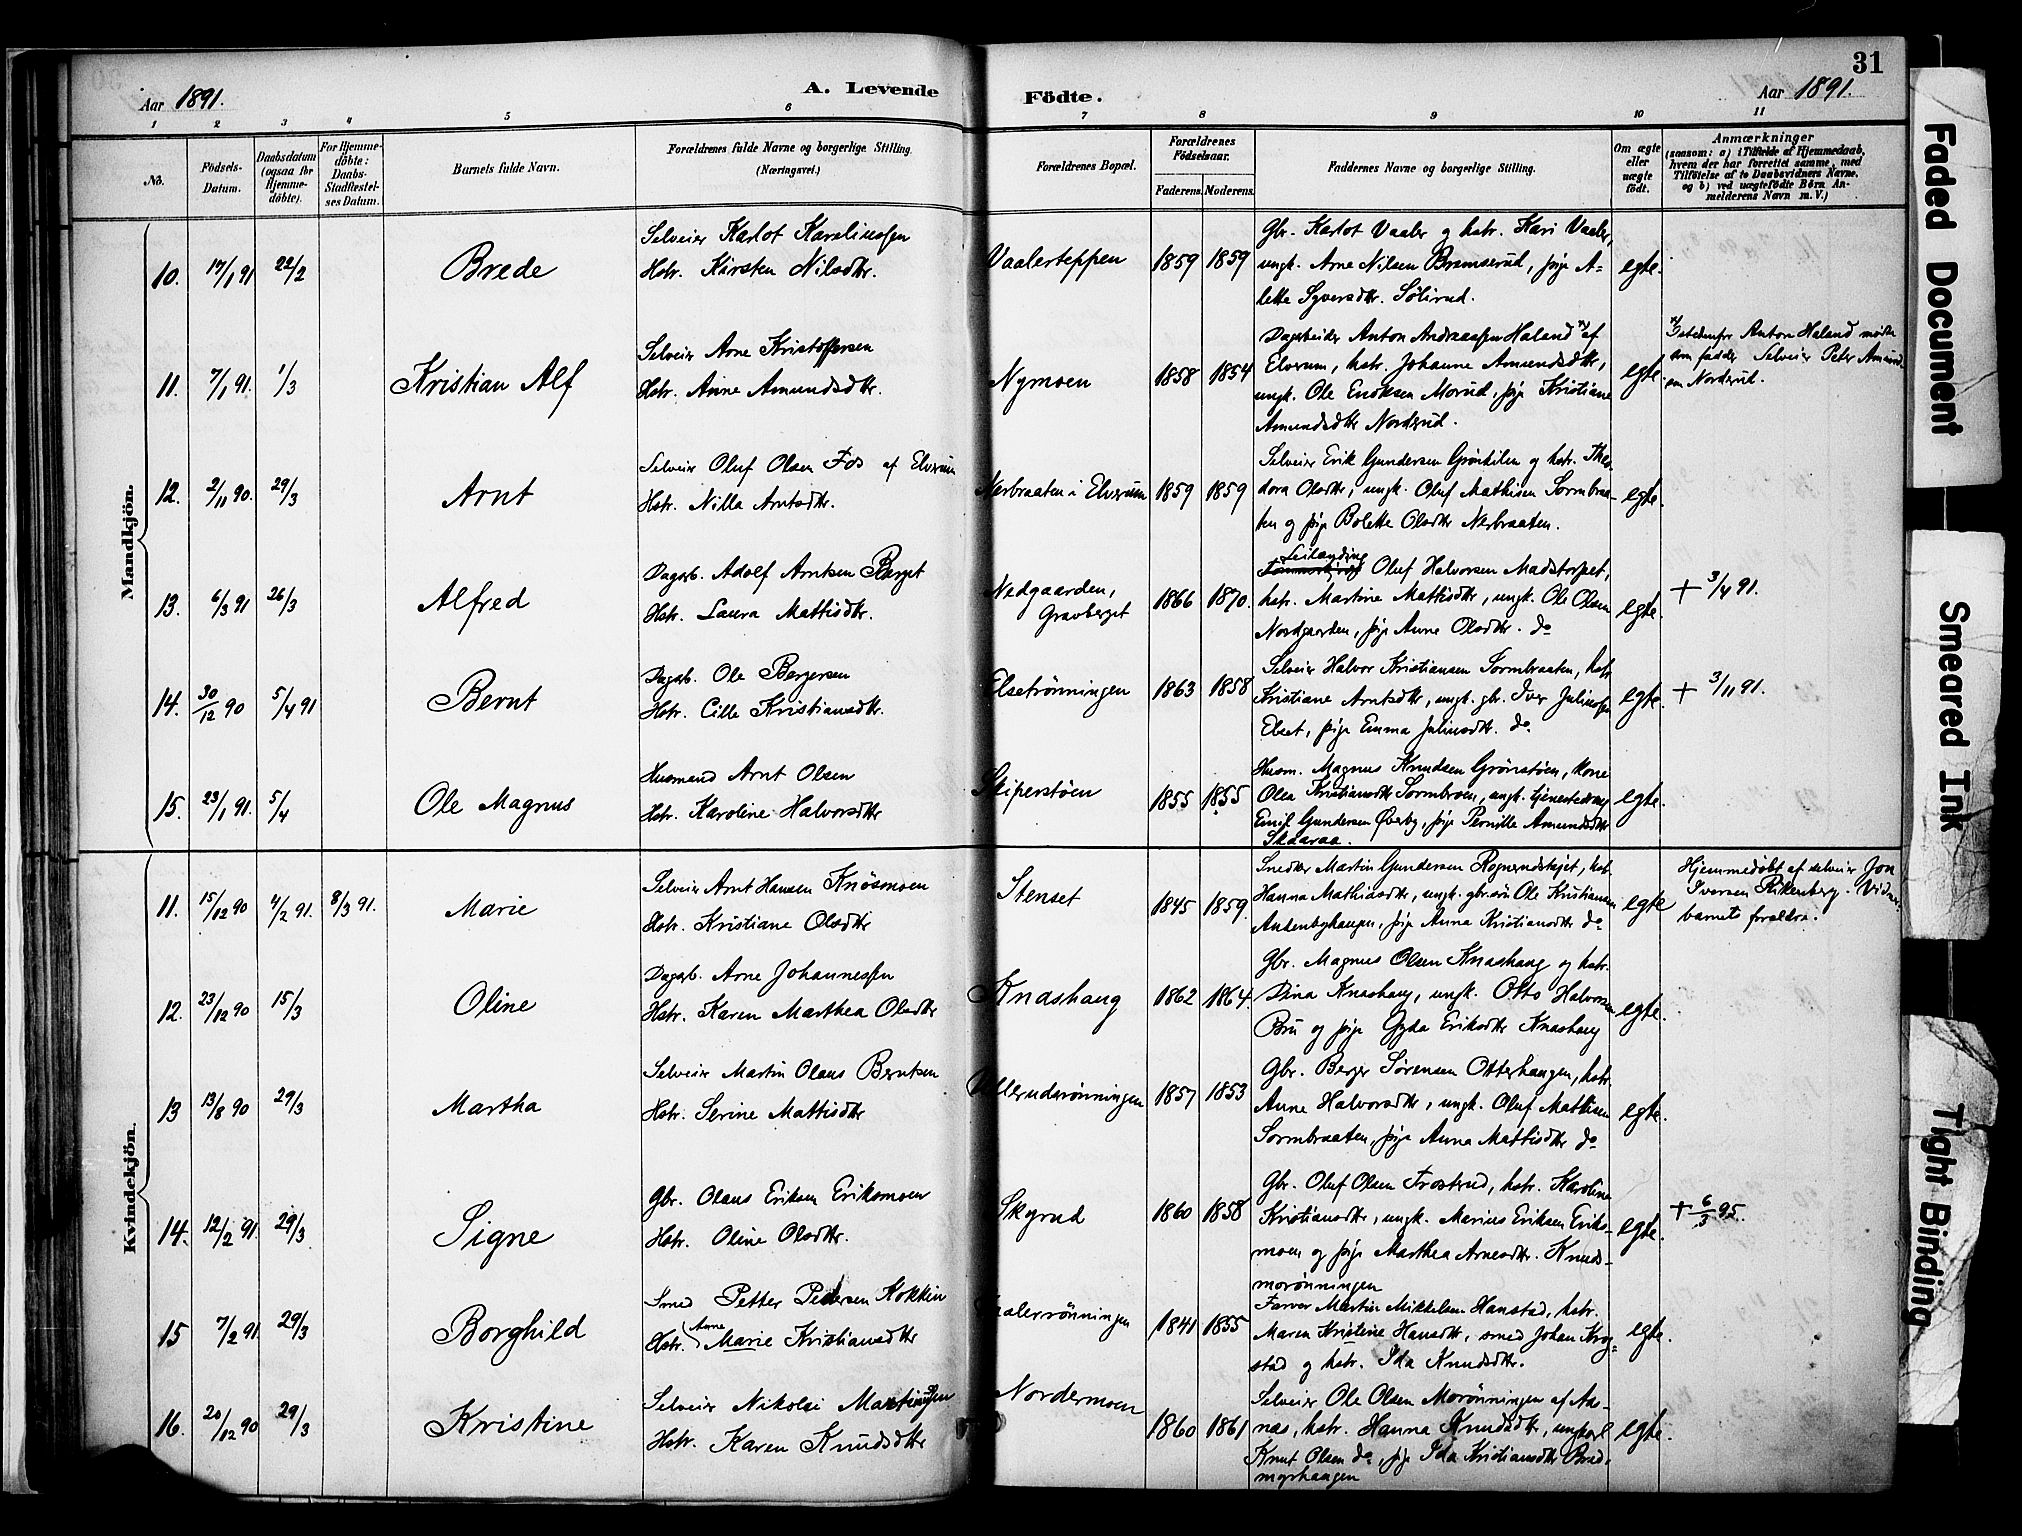 31
Aar 1891.
A. Levende
Födte.
Aar 1891.
1 2 3 4 5 6 7 8 9 10 11
No.
Födsels-
Datum.
Daabsdatum
(ogsaa for
Hjemme-
döbte).
For Hjemme-
döbte:
Daabs-
Stadfæstel-
ses Datum.
Barnets fulde Navn.
Forældrenes fulde Navne og borgerlige Stilling.
(Næringsvei.)
Forældrenes Bopæl.
Forældrenes
Födselsaar.
Faderens. Moderens.
Faddernes Navne og borgerlige Stilling.
Om ægte
eller
uægte
födt.
Anmærkninger
(saasom: a) i Tilfælde af Hjemmedaab,
hvem der har forrettet samme, med
Tilföielse af to Daabsvidners Navne,
og b) ved uægtefödte Börn An-
melderens Navn m. V.)
Mandkjön.
10. 17/1 91 22/2 Brede
Selveier Karlot Karelinssen
Hstr. Kirsten Nilsdtr.
Vaalerteppen 1859 1859
Gbr. Karlot Vaaler og hstr. Kari Vaaler,
ungk. Arne Nilsen Bramserud, pige A-
lette Syversdtr. Sölirud.
egte.
11. 7/1 91. 1/3 Kristian Alf
Selveier Arne Kristoffersen
Hstr. Anne Amundsdtr.
Nymoen 1858 1854
Dagarbeider Anton Andreassen Haland af
Elverum, hstr. Johanne Amundsdtr,
ungk. Ole Eriksen Morud, pige Kristiane
Amundsdtr Nordsrud.
egte.
Istedenfor Anton Haland mødte
som fadder Selveier Peter Amund-
sen Nordsrud.
12. 2/11 90. 29/3 Arnt
Selveier Oluf Olsen Fos af Elverum
Hstr. Nilla Arntsdtr.
Nerbraaten i Elverum 1859 1859
Selveier Erik Gundersen Grönkilen og hstr. Theo-
dora Olsdtr, ungk. Oluf Mathisen Sormbraa-
ten og pige Bolette Olsdtr Nerbraaten.
egte.
13. 6/3 91 26/3 Alfred
Dagarb. Adolf Arntsen Berget
Hstr. Laura Mattisdtr.
Nedgaarden,
Gravberget
1866 1870.
Leilænding
Oluf Halvorsen Madstorpet,
hstr. Martine Mattisdtr, ungk. Ole Olsen
Nordgaarden, pige Anna Olsdtr. do
egte.
+ 3/4 91.
14. 30/12 90 5/4 91 Bernt
Dagarb. Ole Bergersen
Hstr. Cille Kristiansdtr.
Elsetrønningen 1863 1858
Selveier Halvor Kristiansen Sormbraaten, hstr
Kristiane Arntsdtr, ungk. gbr. Iver Juliussen
Elset, pige Emma Juliusdtr. do
egte.
+ 3/11 91.
15. 23/1 91. 5/4 Ole Magnus
Husmand Arnt Olsen
Hstr. Karoline Halvorsdtr
Skiperstöen 1855 1855
Husm. Magnus Knudsen Grönstöen, kone
Olea Kristiansdtr Sormbroen, ungk. tjenestedreng
Emil Gundersen Øverby, pige Pernille Amundsdtr
Skaaraa.
egte.
Kvindekjön.
11. 15/12 90 4/2 91. 8/3 91. Marie
Selveier Arnt Hansen Knösmoen
Hstr. Kristiane Olsdtr
Stenset 1845 1859.
Snedker Martin Gundersen Rognerudskjet, hstr.
Hanna Mathiasdtr, ungk. gbr.sön Ole Kristiansen
Andenbyhaugen, pige Anna Kristiansdtr do
egte
Hjemmedöbt af selveier Jon
Iversen Rikenberg. Vidner:
barnets forældre.
12. 23/12 90 15/3 Oline
Dagarb. Arne Johannessen
Hstr. Karen Marthea Olsdtr
Knashaug 1862 1864.
Gbr. Magnus Olsen Knashaug og hstr.
Dina Knashaug, ungk. Otto Halvorsen
Bru og pige Gyda Eriksdtr Knashaug
egte.
13 13/8 90 29/3 Martha
Selveier Martin Olaus Berntsen
Hstr. Serine Mattisdtr
Ullerudsrønningen 1857 1853
Gbr. Berger Sørensen Otterhaugen, hstr.
Anne Halvorsdtr, ungk. Oluf Mathisen
Sormbraaten, pige Anna Mattisdtr do
egte.
14. 12/2 91. 29/3 Signe
Gbr. Olaus Eriksen Eriksmoen
Hstr. Oline Olsdtr.
Skyrud 1860 1858
Gbr. Oluf Olsen Frostrud, hstr. Karoline
Kristiansdtr, ungk. Marius Eriksen Eriks-
moen og pige Marthea Arnesdtr. Knuds-
morönningen
egte.
+ 6/3 95.
15 7/2 91. 29/3 Borghild
Smed Petter Pedersen Kokkin
Anne
Hstr. Marie Kristiansdtr
Vaalerrønningen 1841 1855
Farver Martin Mikkelsen Hanstad, hstr.
Maren Kristine Hansdtr, smed Johan Krog-
stad og hstr. Ida Knudsdtr.
egte.
16. 20/12 90 29/3 Kristine
Selveier Nikolai Martinussen
Hstr. Karen Knudsdtr
Nordermoen 1860 1861
Selveier Ole Olsen Morønningen af Aas-
nas, hstr. Hanna Knudsdtr, ungkarl
Knut Olsen do, pige Ida Kristiansdtr Brad-
myrhaugen
egte.
Faded Document
Smeared Ink
Tight Binding